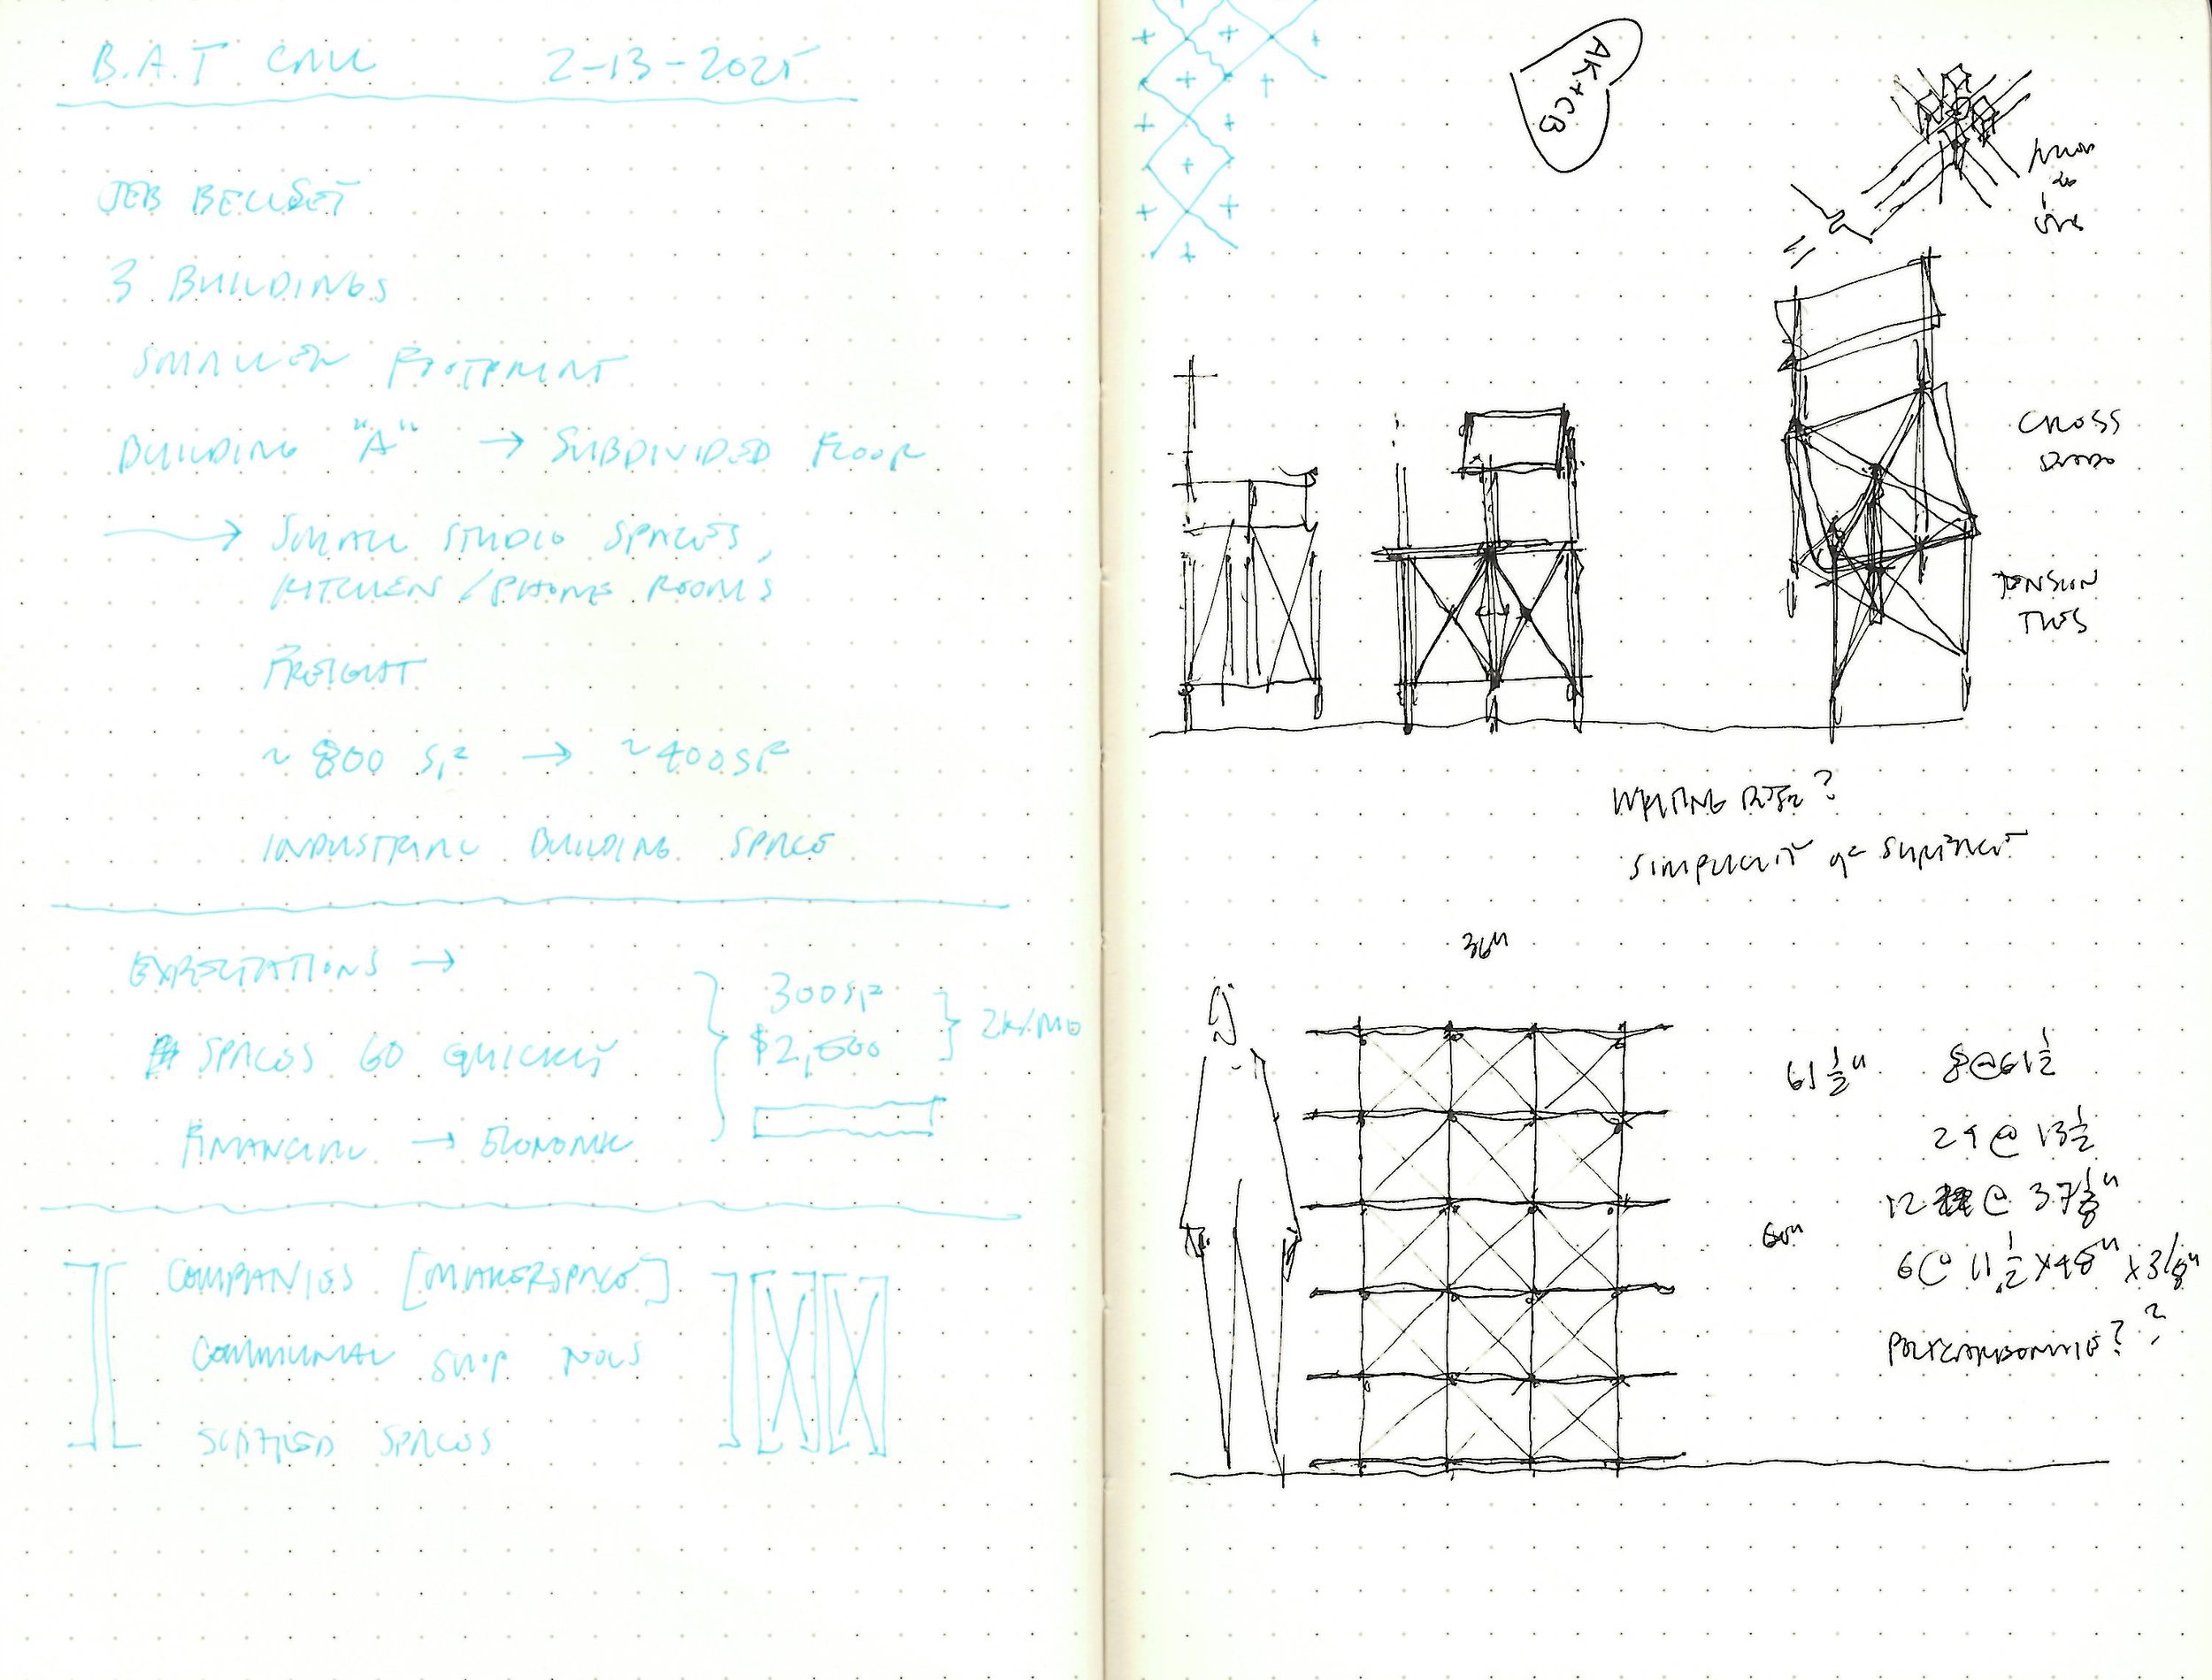 B.A.T CALL 2-13-2025
JEB
3 BUILDINGS
SMALLER FOOTPRINT
BUILDING "A" → SUBDIVIDED FLOOR
→ SMALL STUDIO SPACES,
KITCHEN / PHONE ROOMS
FREIGHT
~ 800 SF → ~400SF
INDUSTRIAL BUILDING SPACE
EXPECTATIONS →
SPACES GO QUICKLY
FINANCIAL → ECONOMIC
300SF
$2,000
2K/MO
COMPANIES [MAKERSPACE]
COMMUNAL SHOP TOOLS
SPACES
AK+CB
CROSS
TENSION
TIES
SIMPLICITY OF SURFACE
36"
61 1/2"
8@61 1/2
24 @ 13 1/2
12 @ 37 1/8"
60"
6@ 11 1/2 X48" X3/8"
POLYCARBONATE??